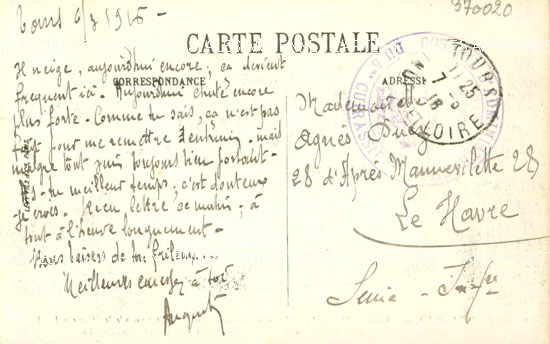 Tours 6/3 1916 -
370020
CARTE POSTALE
CORRESPONDANCE
ADRESSE
Il neige, aujourd'hui encore, ça devient
frequent ici. Aujourd'hui chute encore
plus forte. Comme tu sais, ça n'est pas
fait pour me remettre d'entrain, mais
malgré tout suis toujours bien portant -
meilleur temps, c'est douteux
je crois. Reçu lettre ce matin, à
tout à l'heure longuement -
baisers de
Meilleures à toi
August
Mademoiselle
Agnès
28 d'Après Mannevilette 28
Le Havre
Seine - Infre
TOURS
7 - 3
16
INDRE ET LOIRE